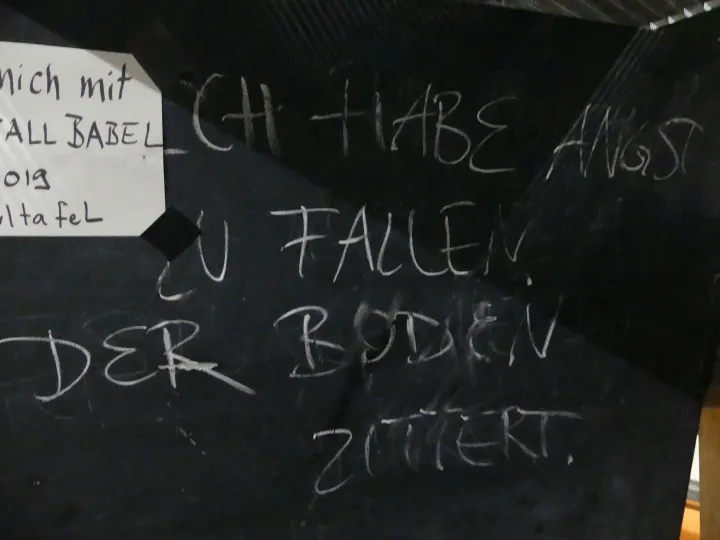 mich mit
FALL BABEL
2019
ltafel
ICH HABE ANGST
ZU FALLEN.
DER BODEN
ZITTERT.